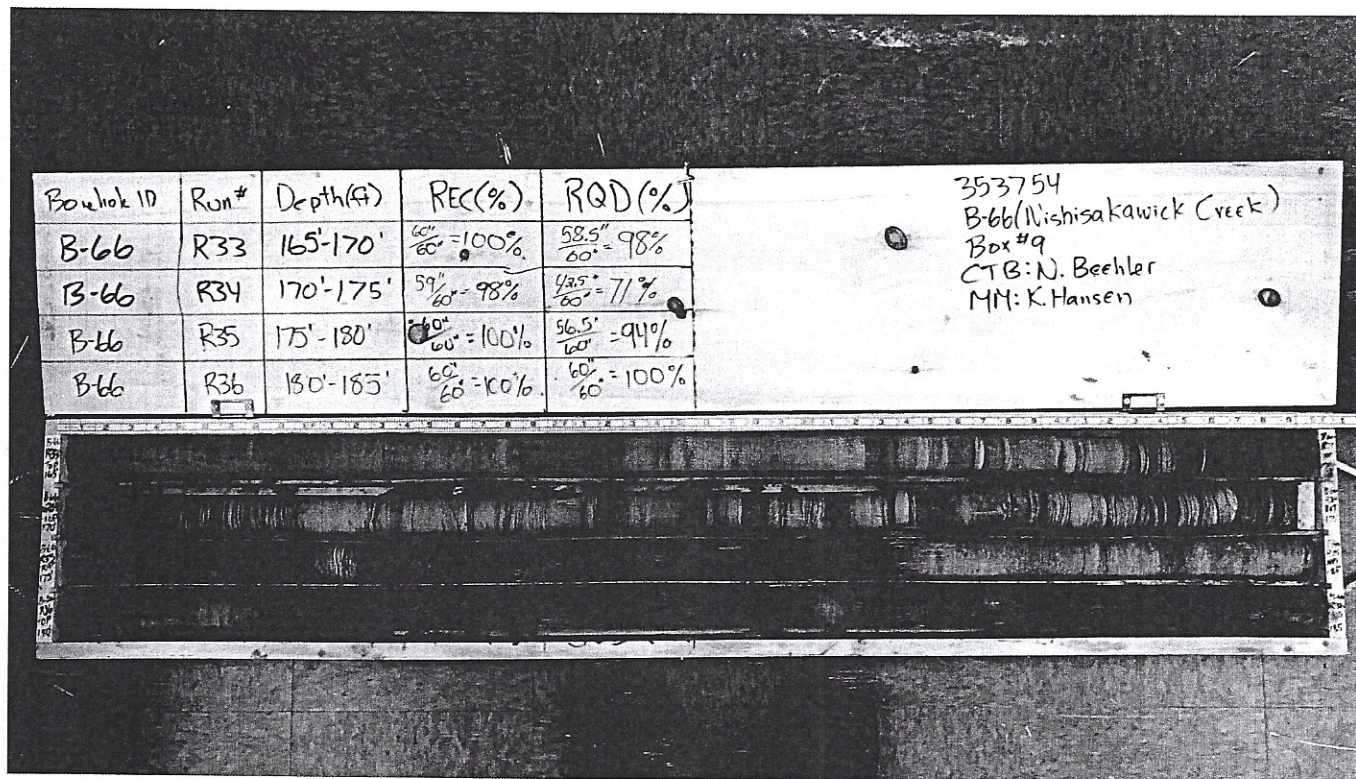 Borehole ID Run# Depth(ft) REC(%) RQD(%)
B-66 R33 165'-170' 60"/60" = 100% 58.5"/60" = 98%
B-66 R34 170'-175' 59"/60" = 98% 42.5"/60" = 71%
B-66 R35 175'-180' 60"/60" = 100% 56.5"/60" = 94%
B-66 R36 180'-185' 60"/60" = 100% 60"/60" = 100%
353754
B-66 (Nishisakawick Creek)
Box #9
CTB: N. Beehler
MM: K. Hansen